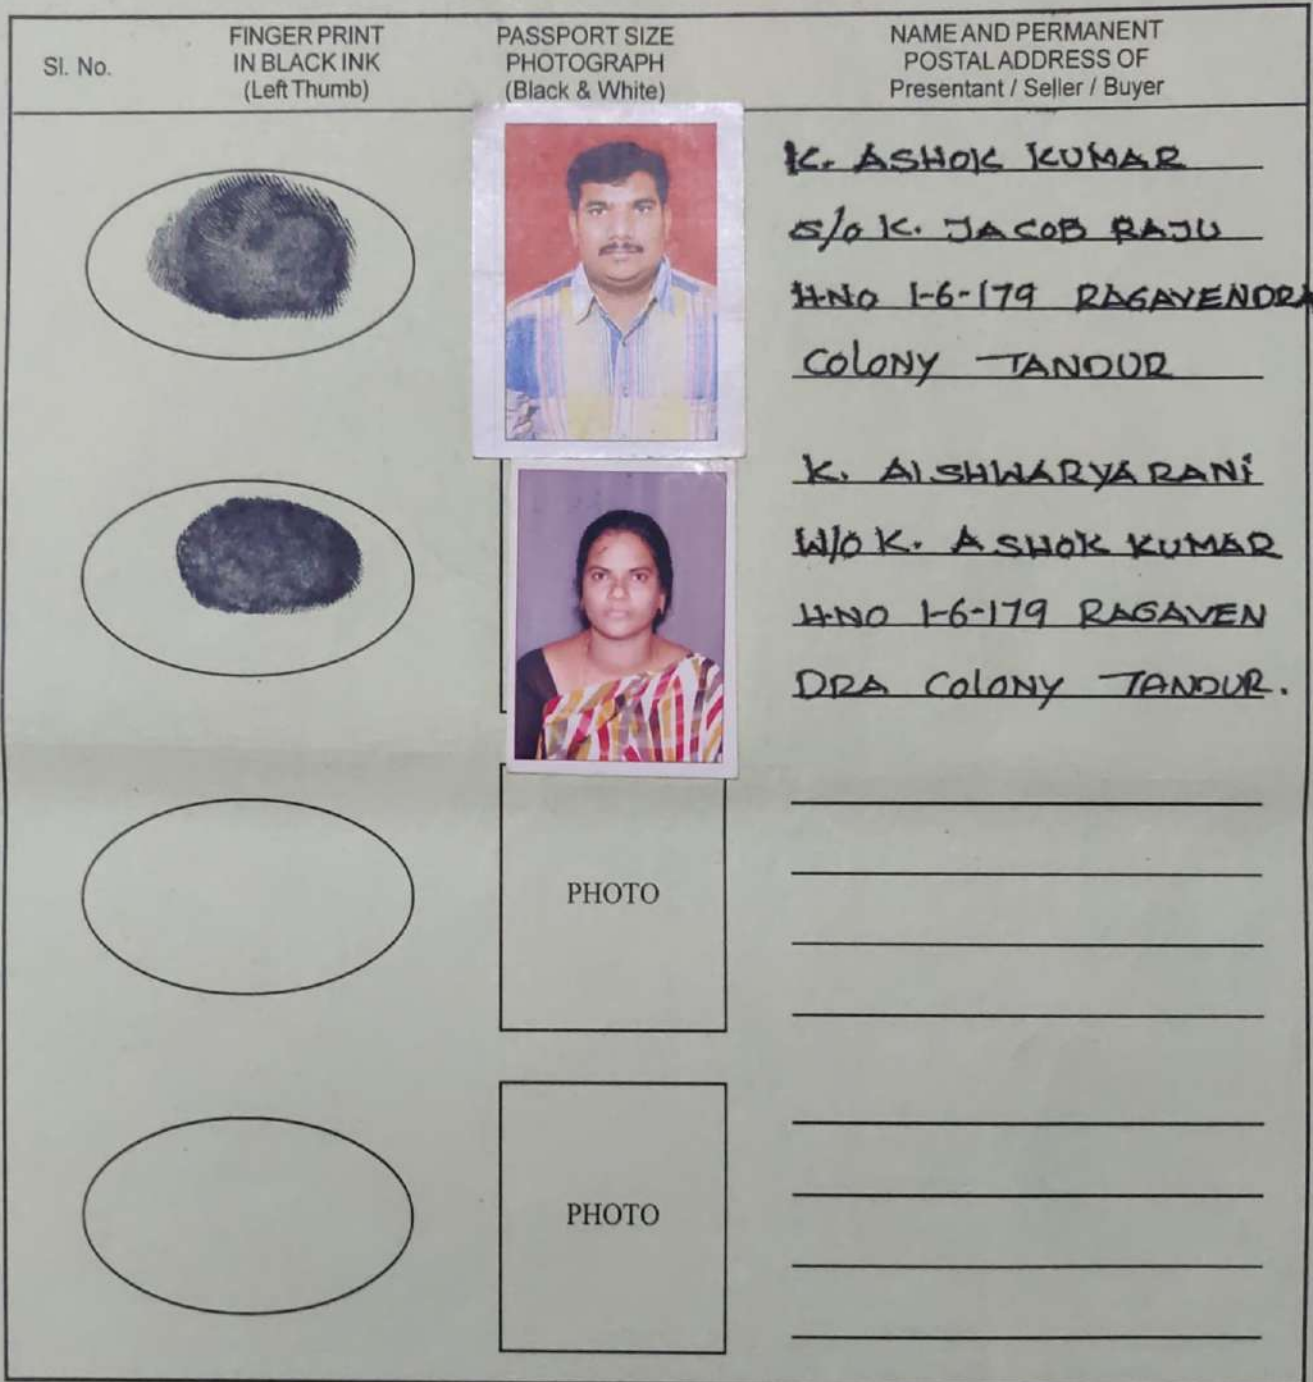 Sl. No.
FINGER PRINT
IN BLACK INK
(Left Thumb)
PASSPORT SIZE
PHOTOGRAPH
(Black & White)
NAME AND PERMANENT
POSTAL ADDRESS OF
Presentant / Seller / Buyer
K. ASHOK KUMAR
S/o K. JACOB RAJU
H.NO 1-6-179 RAGAVENDRA
COLONY TANDUR
K. AISHWARYA RANI
W/O K. ASHOK KUMAR
H.NO 1-6-179 RAGAVEN
DRA COLONY TANDUR.
PHOTO
PHOTO